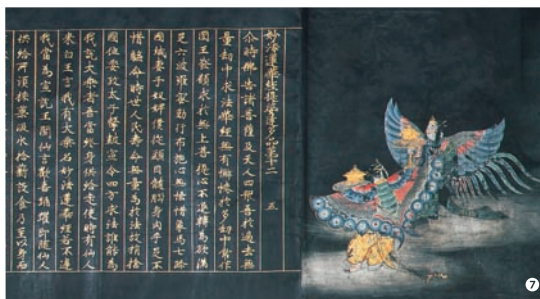 妙法蓮華經提婆達多品第十二 五
尒時佛告諸菩薩及天人四衆吾於過去無
量劫中求法華經無有懈惓於多劫中常作
國王發願求於無上菩提心不退轉為欲滿
足六波羅蜜勤行布施心無悋惜象馬七珎
國城妻子奴婢僕從頭目髓腦身肉手足不
惜軀命時世人民壽命無量為於法故捐捨
國位委政太子擊鼓宣令四方求法誰能為
我說大乘者吾當終身供給走使時有仙人
來白王言我有大乘名妙法蓮華經若不違
我當為宣說王聞仙言歡喜踊躍即隨仙人
供給所須採菓汲水拾薪設食乃至以身而
7